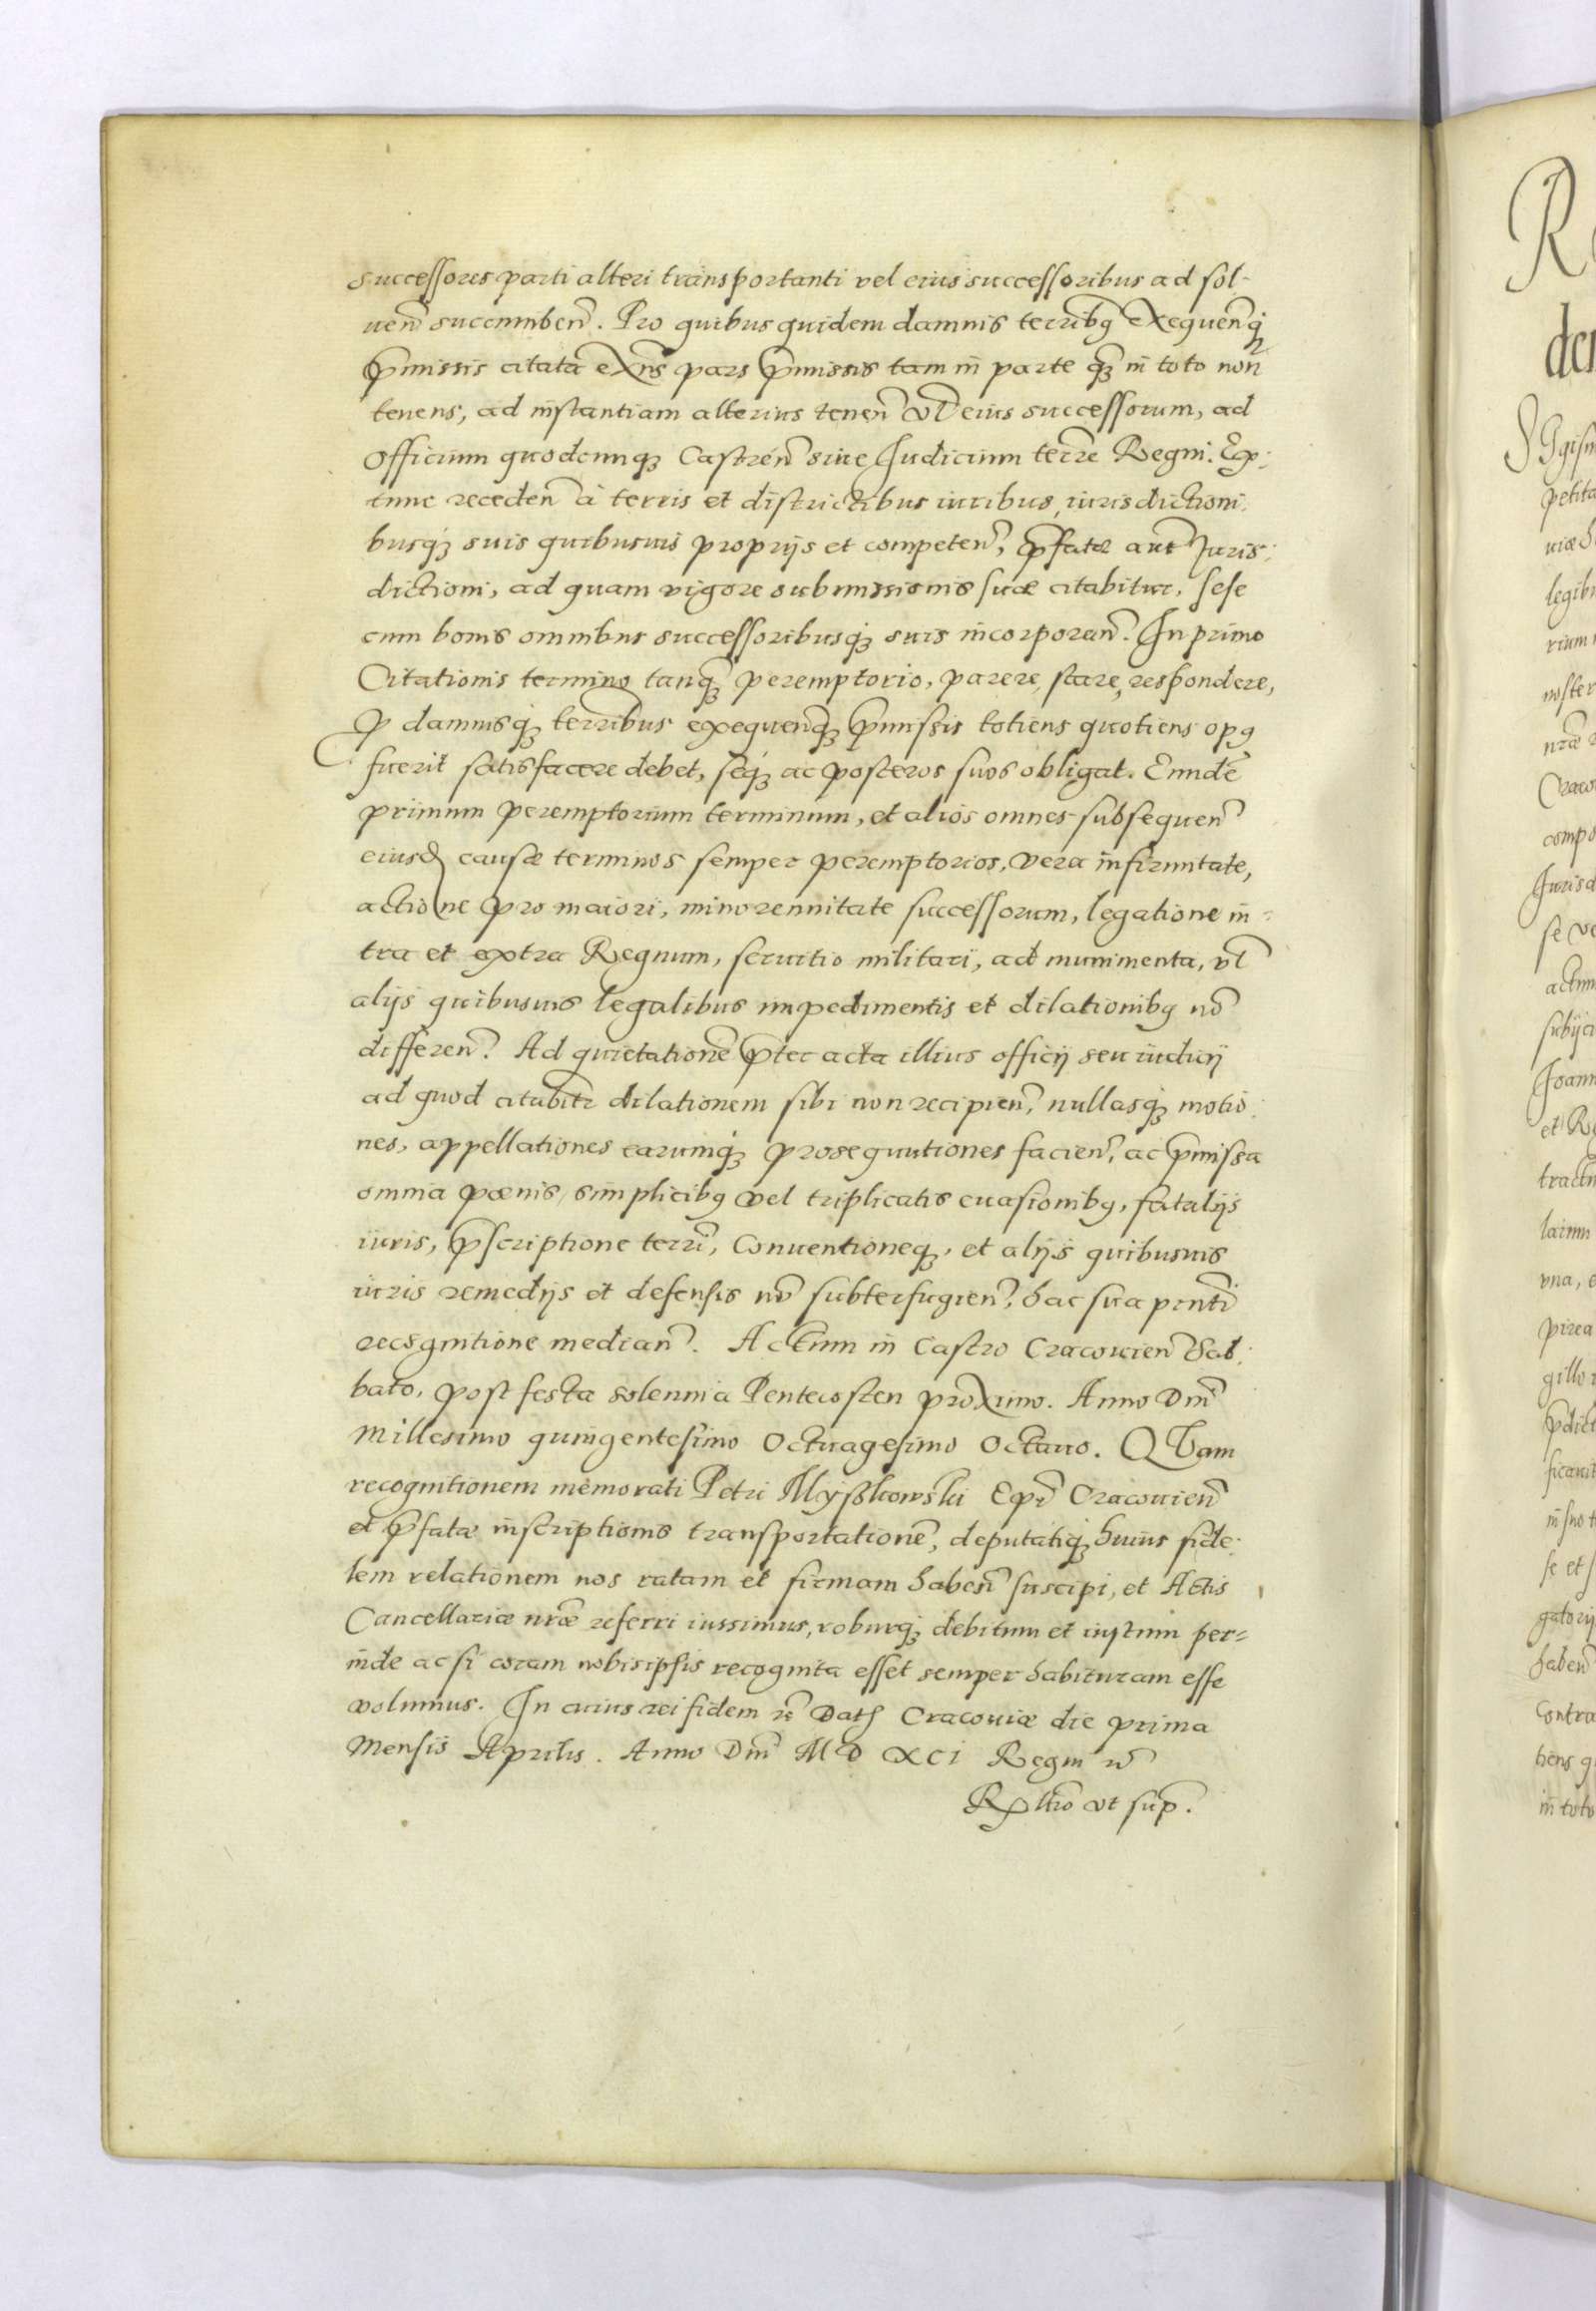 successores parti alteri transportanti vel eius successoribus ad sol-
uen̄ succumben̄. Pro quibus quidem damnis terribꝰ exequenq́
p̄missis citata exn̄s pars p̄missis tam in parte q̃ꝫ in toto non
tenens, ad instantiam alterius tenen̄ vl̄ eius successorum, ad
Officium quodcunqꝫ Castren̄ siue Judicium terre Regni. Ex:
tunc receden̄ à terris et districtibus iuribus, iurisdictioni:
busqꝫ suis quibusuis proprijs et competen̄, p̄fatæ aut̄ Juris:
dictioni, ad quam vigore submissionis suæ citabitur, sese
cum bonis omnibus successoribusqꝫ suis incorporan̄. In primo
Citationis termino tanq̃ꝫ peremptorio, parere, stare, respondere,
ꝓ damnisqꝫ terribus exequen̄qꝫ p̄missis totiens quotiens opꝰ
fuerit satisfacere debet, seqꝫ ac posteros suos obligat. Eundē
primum peremptorium terminum, et alios omnes subsequen̄
eiusd̄ causæ terminos semper peremptorios, vera infirmitate,
actione pro maiori, minorennitate successorum, legatione in-
tra et extra Regnum, seruitio militari, ad munimenta, vl̄
alijs quibusuis legalibus impedimentis et dilationibꝰ nō
differen̄. Ad quietationē p̄ter acta illius officij seu iudicij
ad quod citabit̄ dilationem sibi non recipien̄, nullasqꝫ motio:
nes, appellationes earumqꝫ prosequutiones facien̄, ac p̄missa
omnia pœnis, simplicibꝰ vel triplicatis euasionibꝰ, fatalijs
iuris, p̄scriptione terri, Conuentioneqꝫ, et alijs quibusuis
iuris remedijs et defensis nō subterfugien̄, hac sua pn̄ti
recognitione median̄. Actum in Castro Cracouien̄ Sab:
bato, post festa solennia Pentecosten proximo. Anno Dn̄i
Millesimo quingentesimo Octuagesimo Octauo. Quam
recognitionem memorati Petri Myszkowski Ep̄i Cracouien̄
et p̄fatæ inscriptionis transportationē, deputatiqꝫ huius fide:
lem relationem nos ratam et firmam haben̄ suscipi, et Actis
Cancellariæ nr̄æ referri iussimus, roburqꝫ debitum et iustum per=
inde ac si coram nobisipsis recognita esset semper habituram esse
volumus. In cuius rei fidem &c̄ Datꝭ Cracouiæ die prima
Mensis Aprilis. Anno Dn̄i M D XCI Regni &c̄
Rl̄tio vt sup̄.
R
der
petita
legib
rium
noster
nr̄æ
Craco
compo
Jurisd
se ve
actum
subijci
Joann
et R
tractu
pirea
gillo
p̄dict
ficauit
in suo t
se et s
gatorij
haben̄
contra
tiens q
in toto